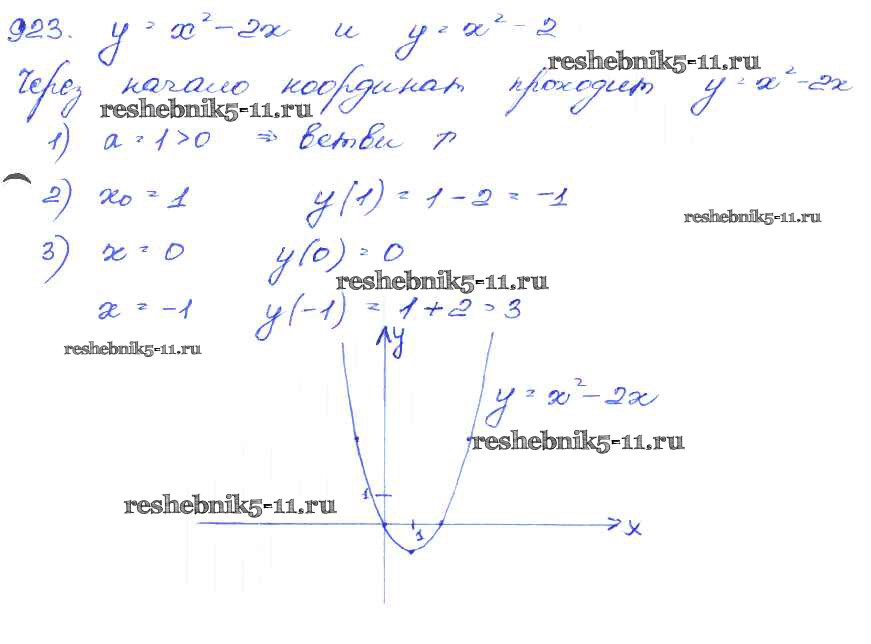 923. y = x² - 2x и y = x² - 2
reshebnik5-11.ru
Через начало координат проходит y = x² - 2x
reshebnik5-11.ru
1) a = 1 > 0 ⇒ ветви ↑
2) x₀ = 1 y(1) = 1 - 2 = -1
reshebnik5-11.ru
3) x = 0 y(0) = 0
reshebnik5-11.ru
x = -1 y(-1) = 1 + 2 = 3
y
reshebnik5-11.ru
y = x² - 2x
reshebnik5-11.ru
1
reshebnik5-11.ru
1 x